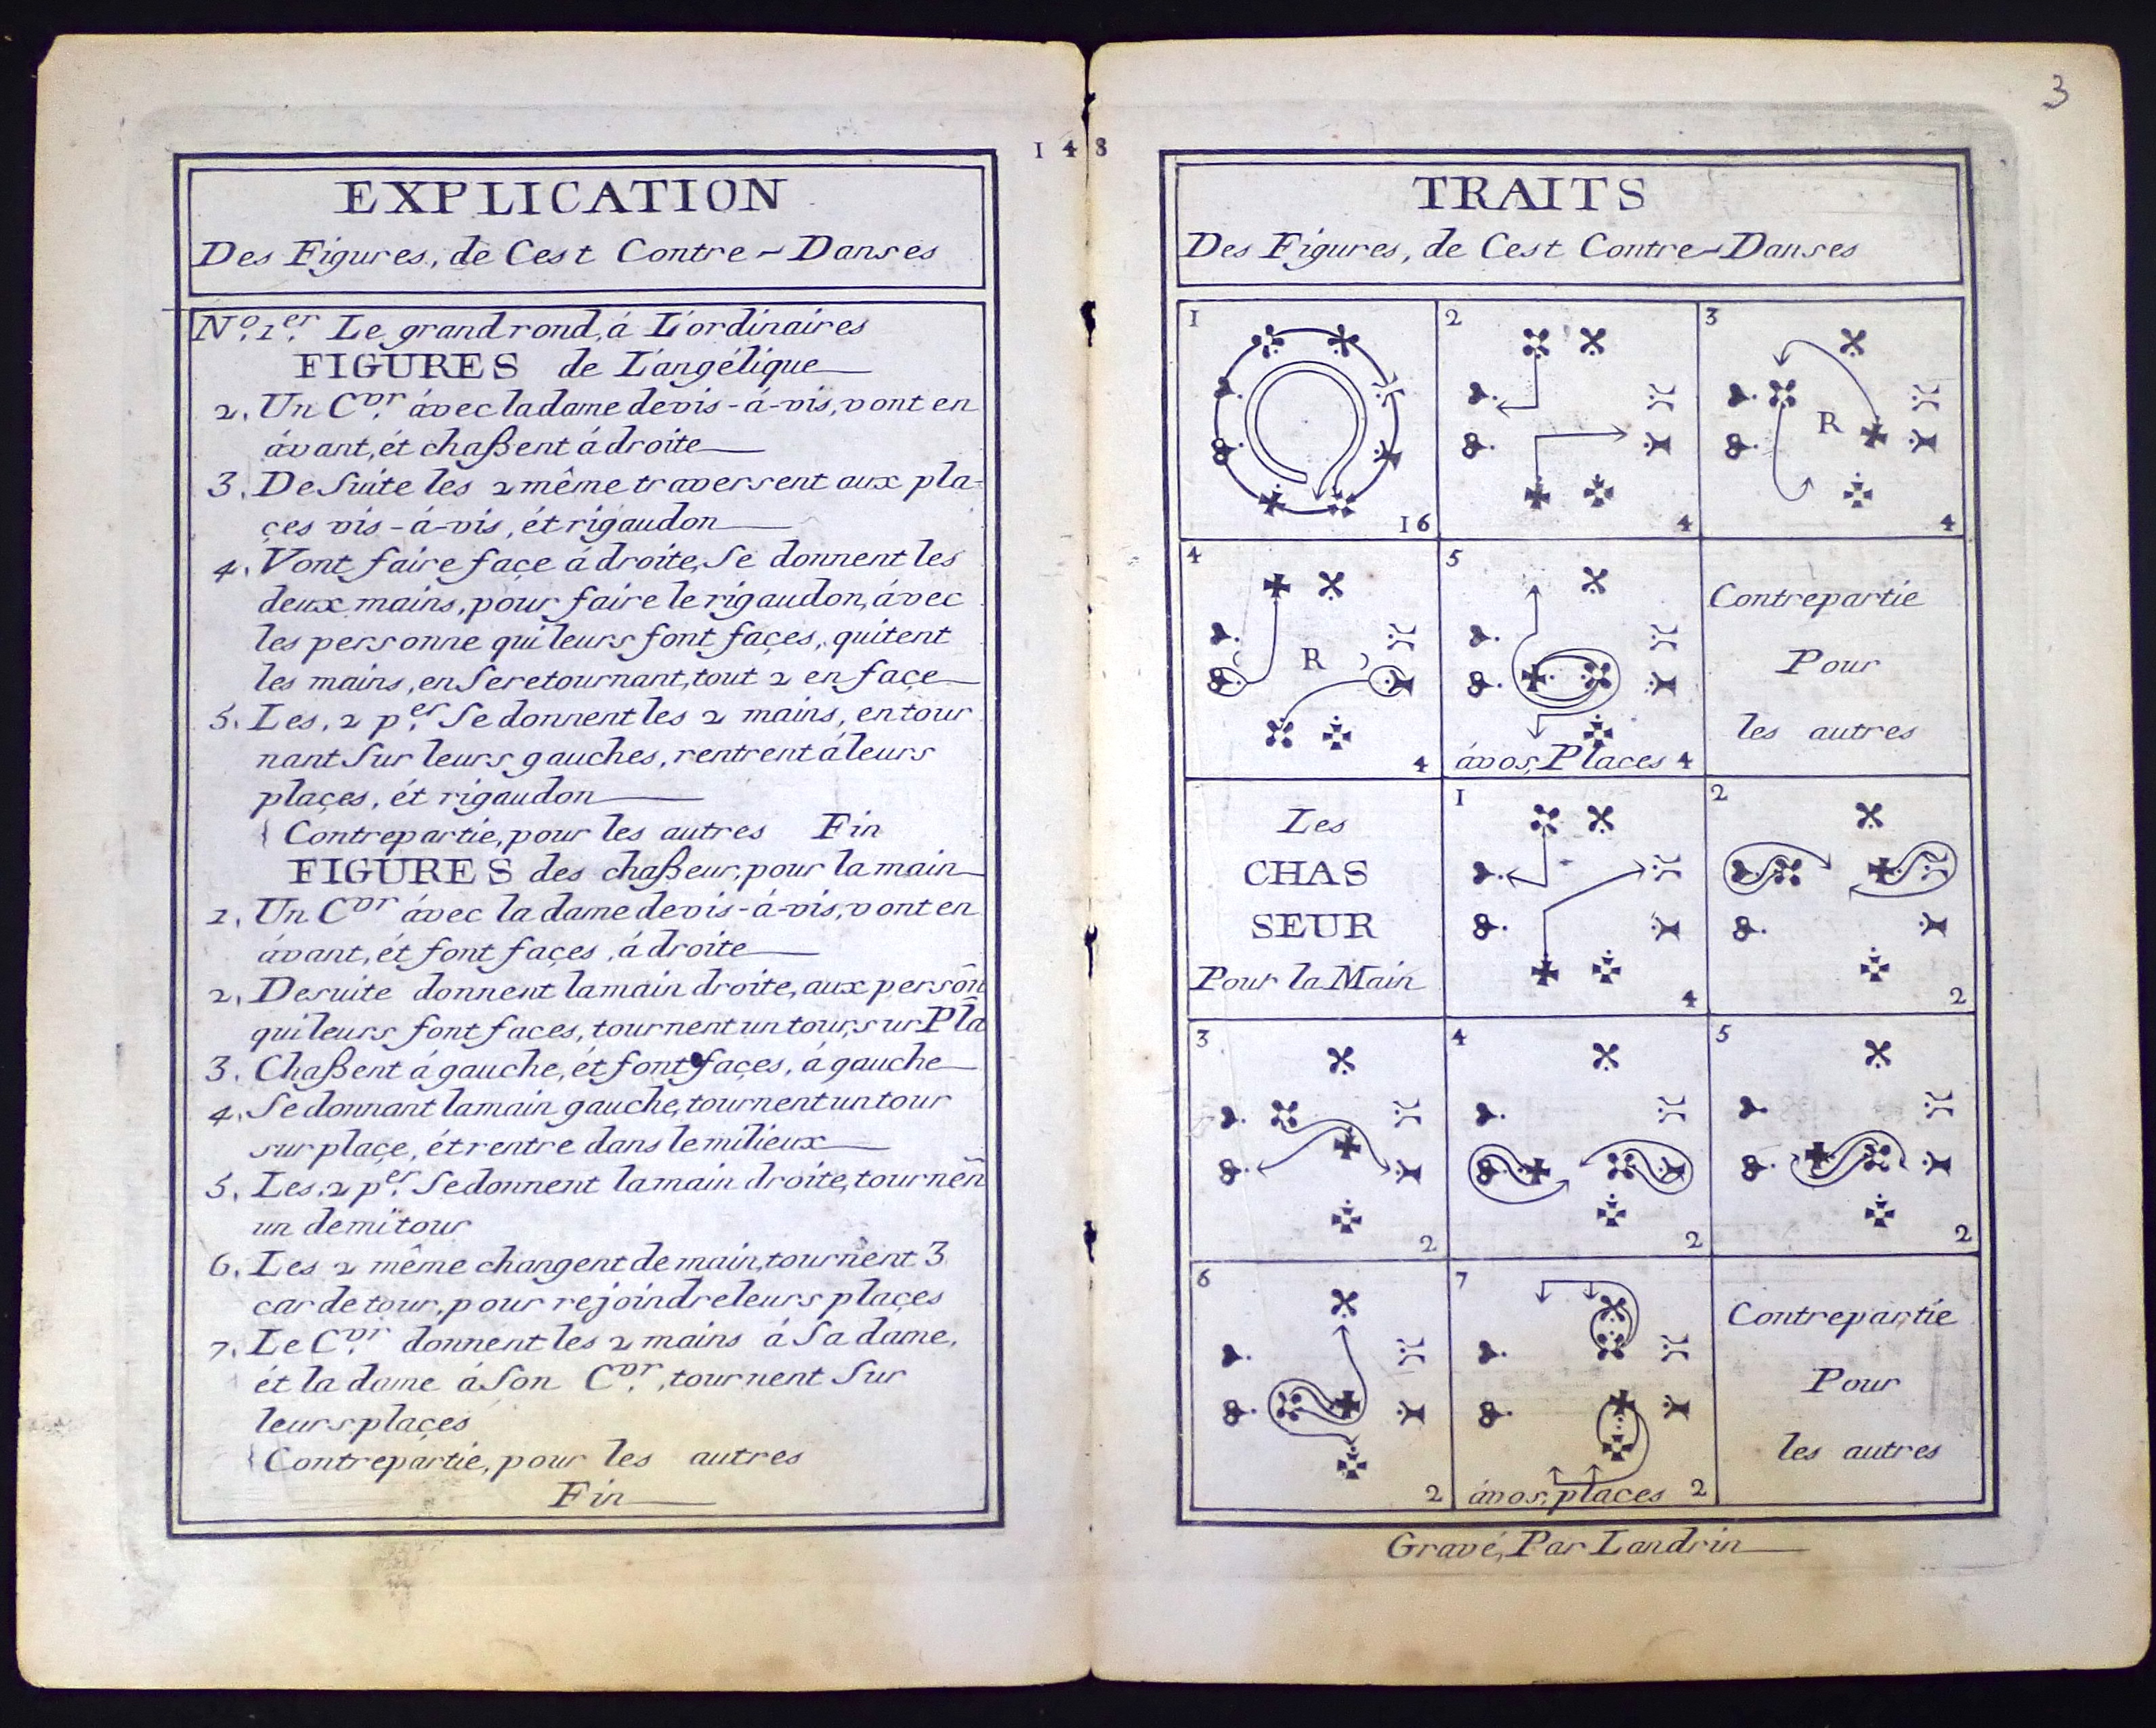 148
EXPLICATION
Des Figures, de Cest Contre-Danses
Nº.1er. Le grand rond, á L'ordinaires
FIGURES de L'angélique
2. Un Cvr. ávec la dame de vis-á-vis, vont en
ávant, ét chaßent á droite
3. De Suite les 2 même traversent aux pla-
çes vis-á-vis, ét rigaudon
4. Vont faire façe á droite, Se donnent les
deux mains, pour faire le rigaudon, ávec
les personne qui leurs font façes, quitent
les mains, en Se retournant, tout 2 en façe
5. Les, 2 p.er Se donnent les 2 mains, en tour
nant Sur leurs gauches, rentrent á leurs
plaçes, ét rigaudon
Contrepartie, pour les autres Fin
FIGURES des chaßeur, pour la main
1. Un Cvr ávec la dame de vis-á-vis, vont en
ávant, ét font façes, á droite
2. De suite donnent la main droite, aux persôn
qui leurs font faces, tournent un tour, sur Pla
3. Chaßent á gauche, ét font façes, á gauche
4. Se donnant la main gauche, tournent un tour
sur plaçe, ét rentre dans le milieux
5. Les. 2 p.er Se donnent la main droite, tournên
un demi tour
6. Les 2 même changent de main, tournent 3
car de tour, pour rejoindre leurs plaçes
7. Le Cvr. donnent les 2 mains á Sa dame,
ét la dame á Son Cvr., tournent Sur
leurs plaçes
Contrepartie, pour les autres
Fin
3
TRAITS
Des Figures, de Cest Contre-Danses
1 16
2 4
3 R 4
4 R 4
5 ávos, Places 4
Contrepartie
Pour
les autres
Les
CHAS
SEUR
Pour la Main
1 4
2 2
3 2
4 2
5 2
6 2
7 ávos, places 2
Contrepartie
Pour
les autres
Gravé, Par Landrin